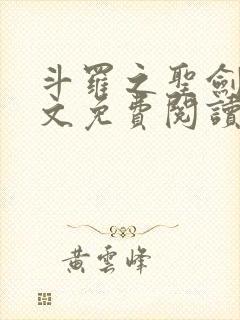 斗羅之聖劍
文免費閱讀
黃雲峰